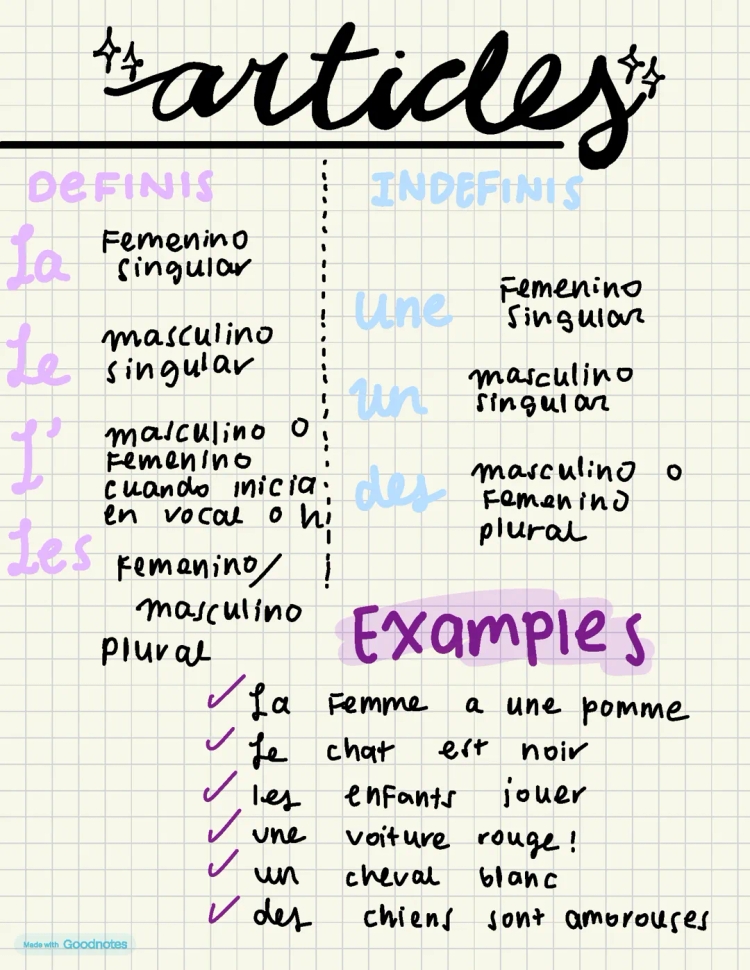 articles
DEFINIS
La
Femenino
singular
Le
masculino
singular
L'
masculino o
Femenino
cuando inicia
en vocal o h
Les
Femenino/
masculino
plural
INDEFINIS
Une
Femenino
singular
un
masculino
singular
des
masculino o
Femenino
plural
Examples
La Femme a une pomme
Le chat est noir
les enfants jouer
une voiture rouge!
un cheval blanc
des chiens sont amorouses
Made with Goodnotes